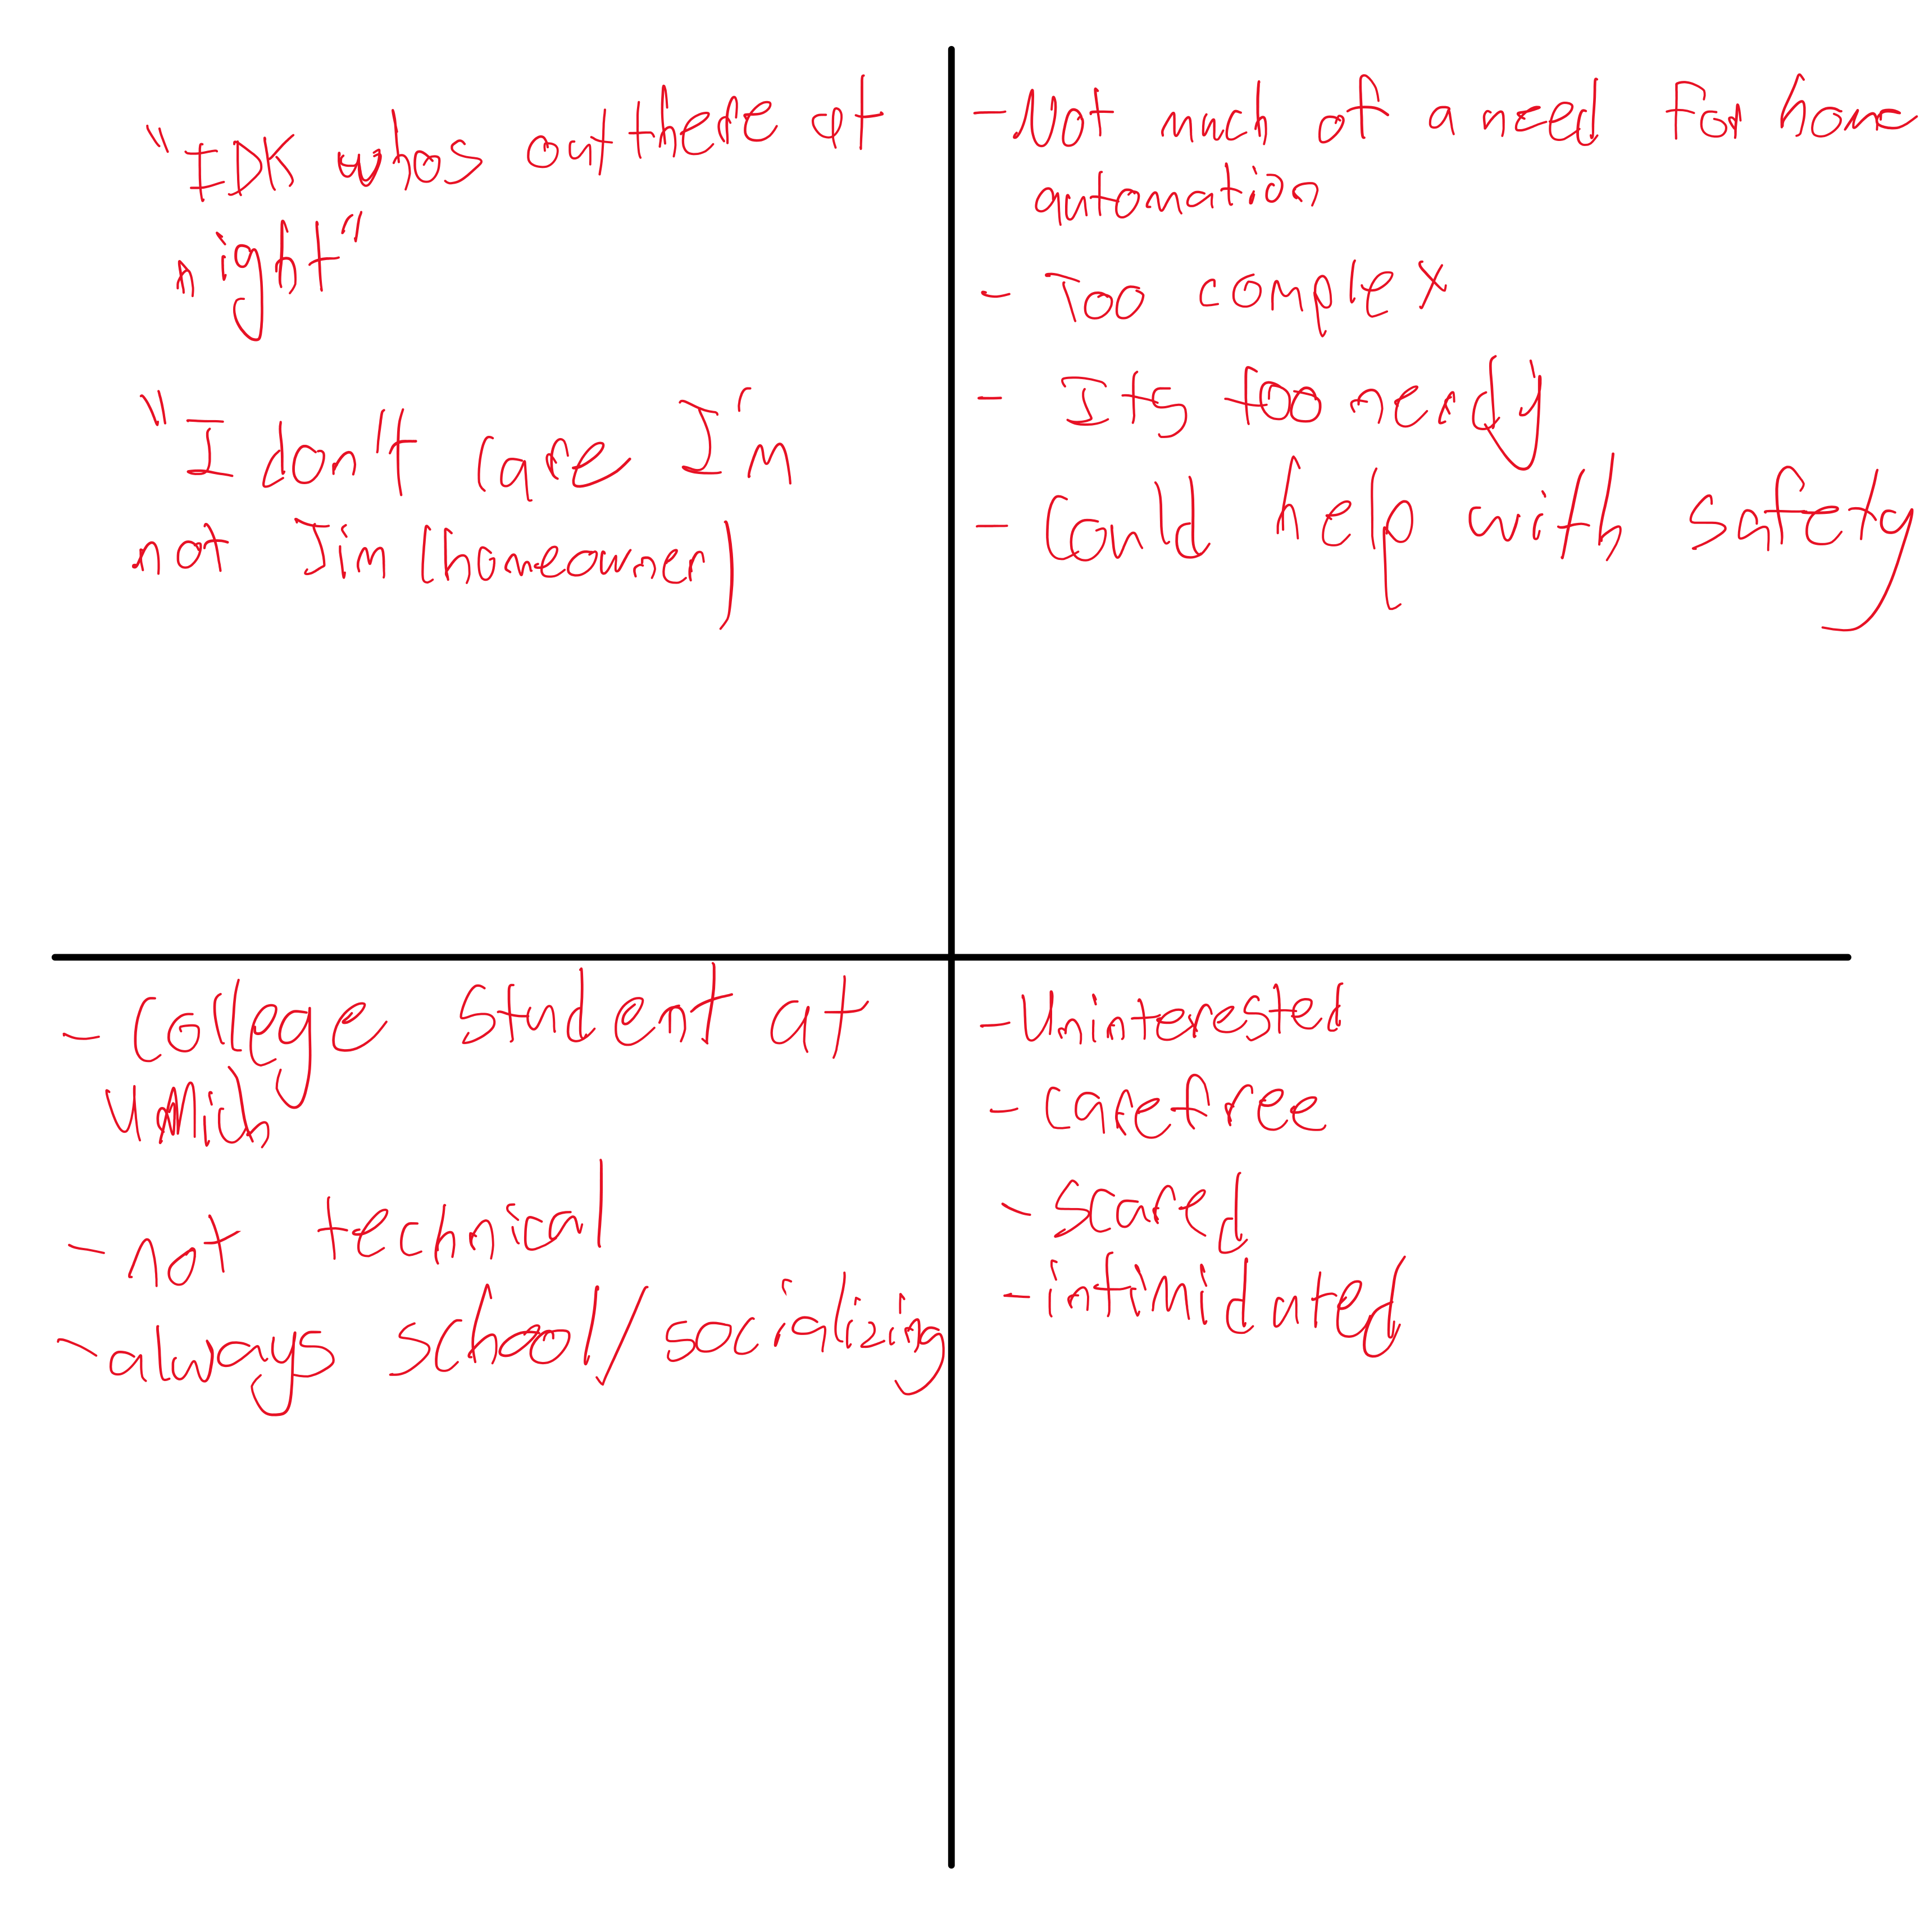 "IDK whos out there at
night"
"I dont care I'm
not Jim (homeowner)
- Not much of a need for home
automation
- Too complex
- Its too nerdy
- Could help with safety
- College student at
UMich
- not technical
- always school/socialising
- Uninterested
- carefree
- scared
- intimidated